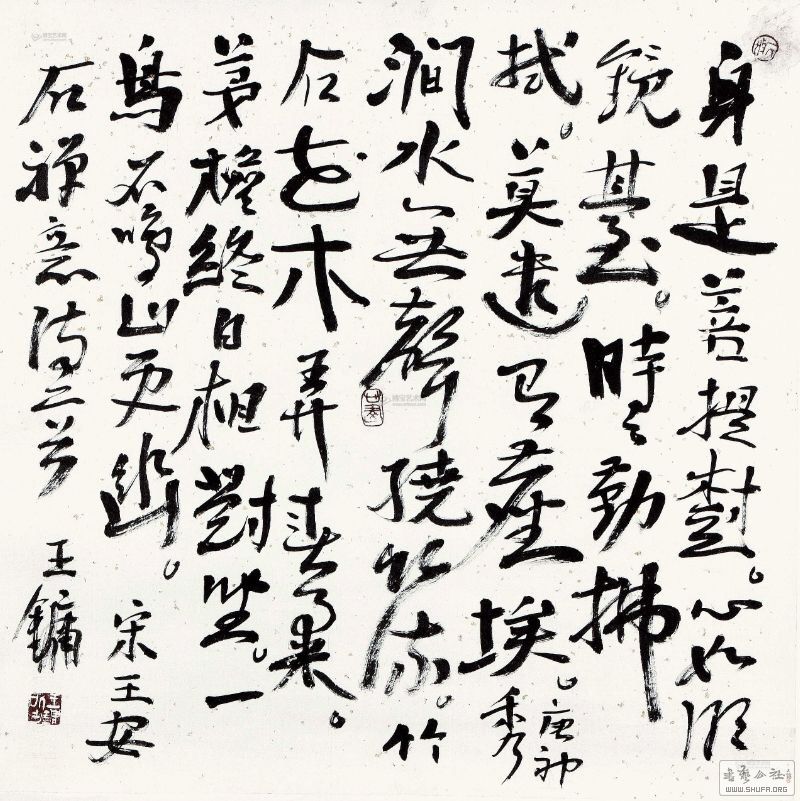 身是菩提樹。心如明
鏡臺。時々勤拂
拭。莫遣有塵埃。唐神秀
澗水無聲繞竹流。竹
花木弄春柔。
茅檐終日相對坐。一
鳥不鳴山更幽。宋王安
石禪意詩二首 王鏞
書藝公社
WWW.SHUFA.ORG